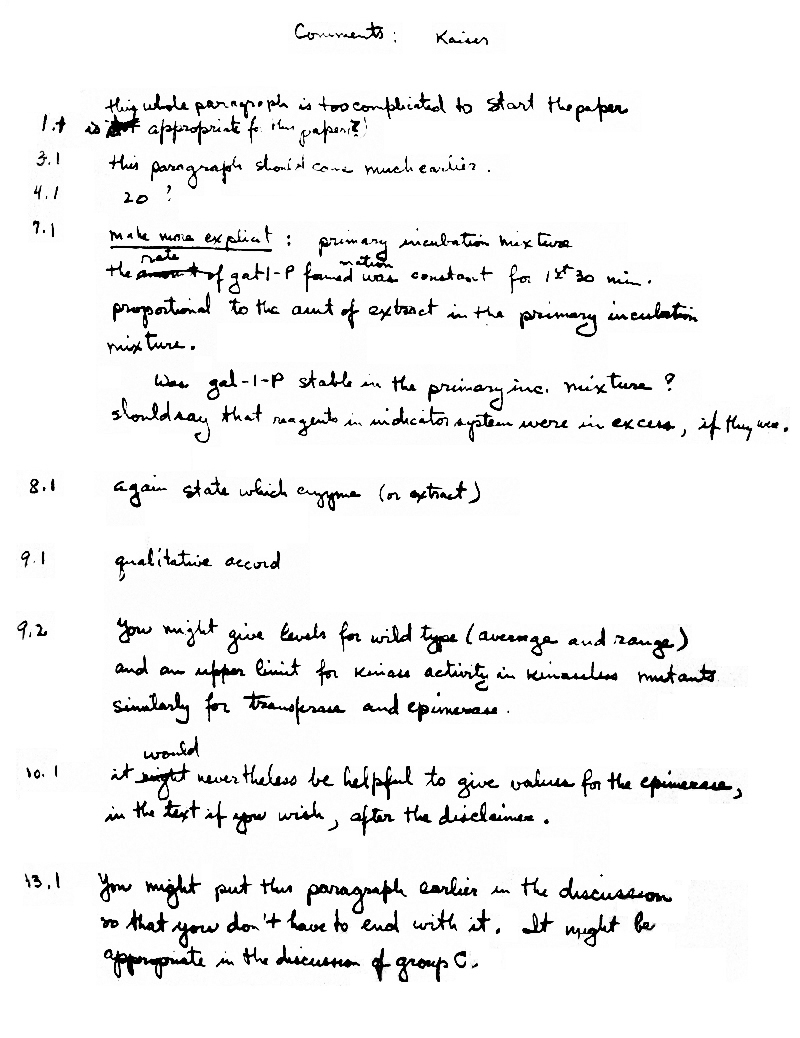 Comments: Kaiser
this whole paragraph is too complicated to start the paper
1.+ is appropriate for this paper(?)
3.1 this paragraph should come much earlier.
4.1 20 ?
7.1 make more explicit : primary incubation mixture
rate mation
the amount of gal-1-P formed was constant for 1st 30 min.
proportional to the amt of extract in the primary incubation
mixture.
Was gal-1-P stable in the primary inc. mixture ?
should say that reagents in indicator system were in excess, if they were.
8.1 again state which enzyme (or extract)
9.1 qualitative accord
9.2 You might give levels for wild type (average and range)
and an upper limit for kinase activity in kinaseless mutants
similarly for transferase and epimerase.
would
10.1 it might nevertheless be helpful to give values for the epimerase,
in the text if you wish, after the disclaimer.
13.1 You might put this paragraph earlier in the discussion
so that you don't have to end with it. It might be
appropriate in the discussion of group C.